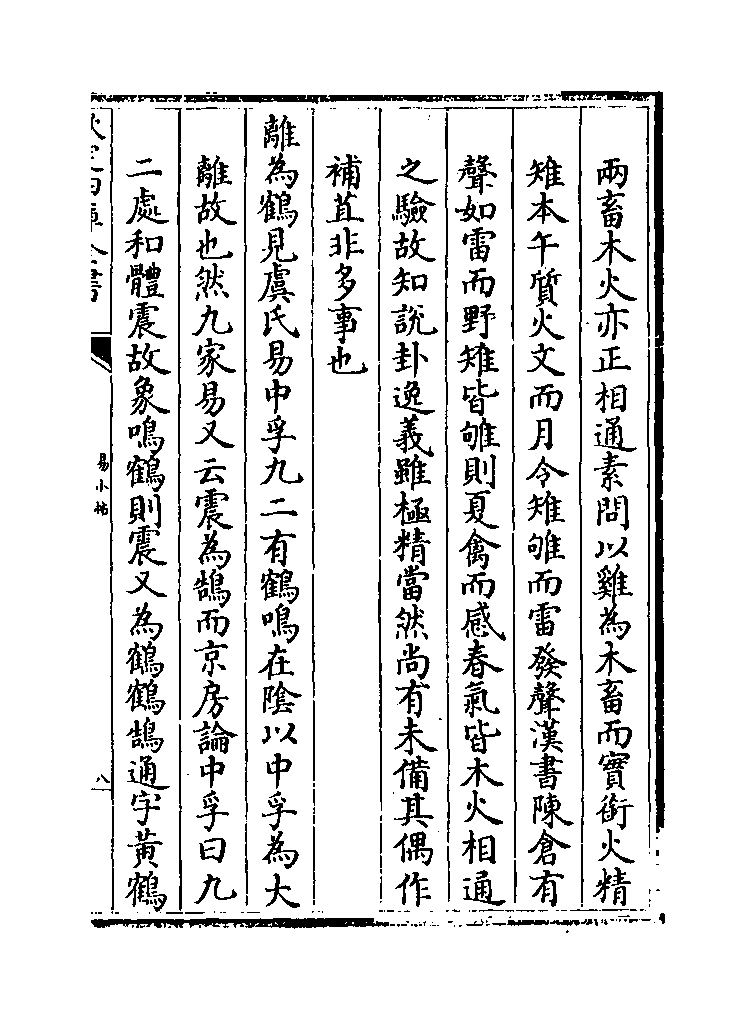 兩畜木火亦正相通素問以雞為木畜而實銜火精
雉本午質火文而月令雉雊而雷發聲漢書陳倉有
聲如雷而野雉皆雊則夏禽而感春氣皆木火相通
之驗故知說卦逸義雖極精當然尚有未備其偶作
補苴非多事也
離為鶴見虞氏易中孚九二有鶴鳴在陰以中孚為大
離故也然九家易又云震為鵠而京房論中孚曰九
二處和體震故象鳴鶴則震又為鶴鶴鵠通字黃鶴
欽定四庫全書
易小帖
八